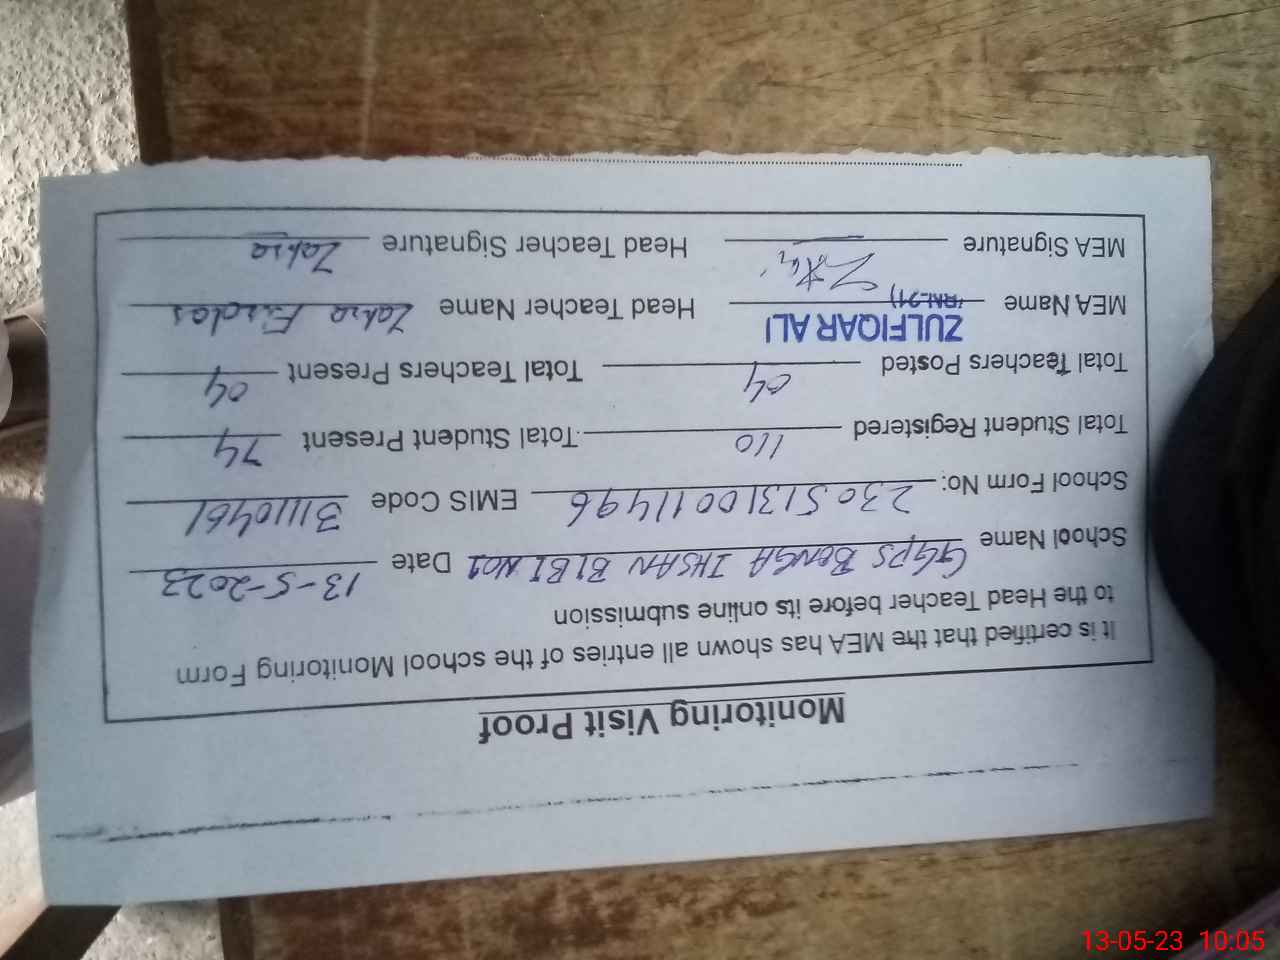 Monitoring Visit Proof
It is certified that the MEA has shown all entries of the school Monitoring Form
to the Head Teacher before its online submission
School Name GGPS BONGA IHSAN BIBI NO1 Date 13-5-2023
School Form No: 2305131001496 EMIS Code 31110461
Total Student Registered 110 Total Student Present 74
Total Teachers Posted 04 Total Teachers Present 04
ZULFIQAR ALI
MEA Name Head Teacher Name Zahra Firdos
MEA Signature Head Teacher Signature Zahra
13-05-23 10:05